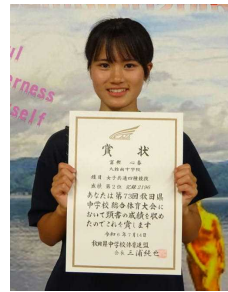 ul
erness
self
賞状
種目 女子共通四種競技
あなたは第73回秋田県
中学校総合体育大会に
おいて頭書の成績を収め
たのでこれを賞します
秋田県中学校体育連盟
会長 三浦